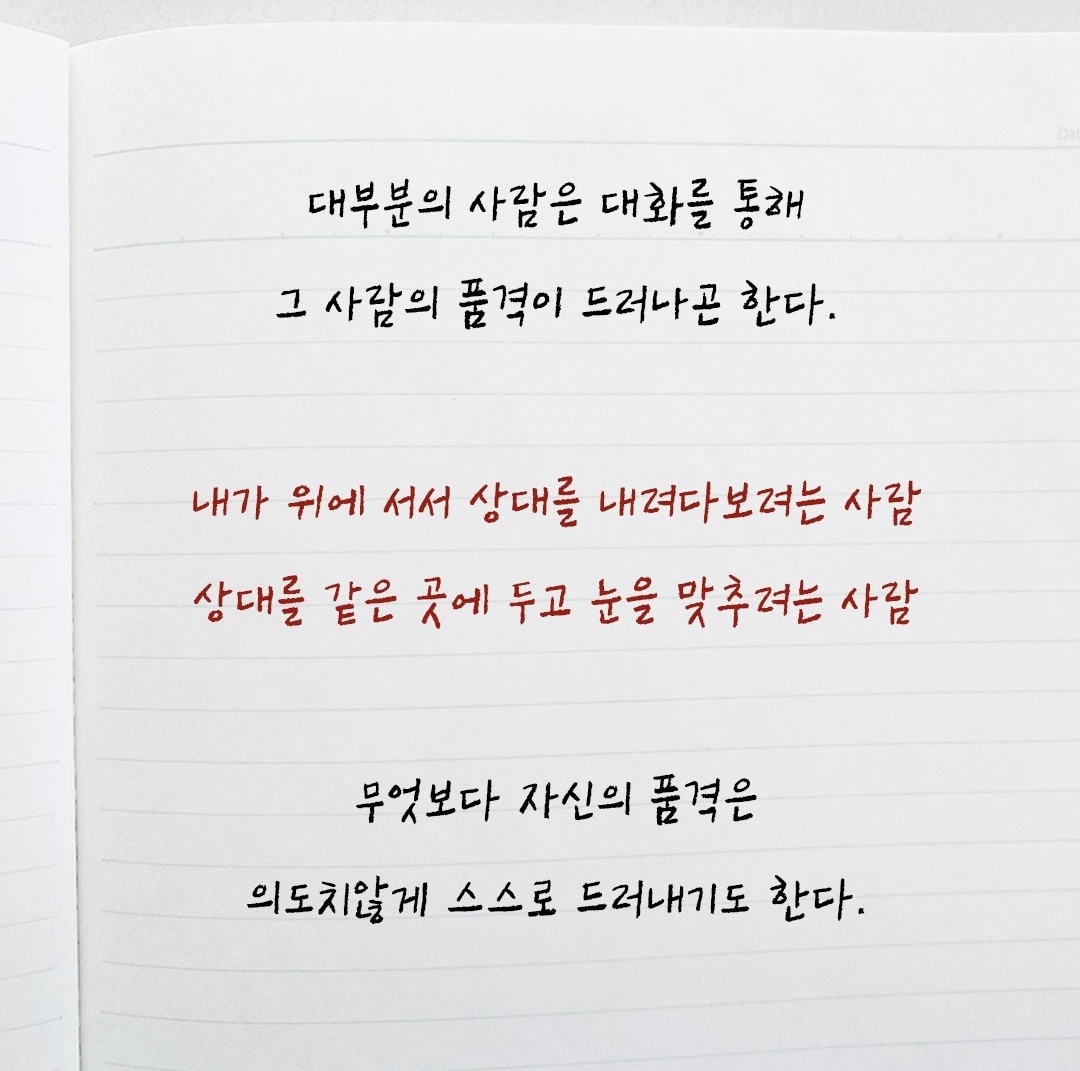 대부분의 사람은 대화를 통해
그 사람의 품격이 드러나곤 한다.
내가 위에 서서 상대를 내려다보려는 사람
상대를 같은 곳에 두고 눈을 맞추려는 사람
무엇보다 자신의 품격은
의도치않게 스스로 드러내기도 한다.